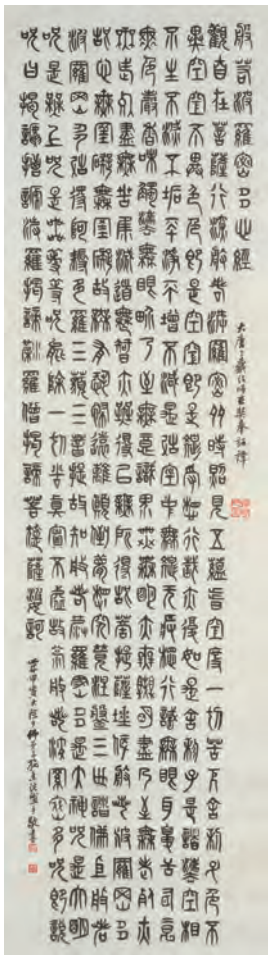 般若波羅密多心經
大唐三藏法師玄奘奉詔譯
觀自在菩薩行深般若波羅密多時照見五蘊皆空度一切苦厄舍利子色不
異空空不異色色即是空空即是色受想行識亦復如是舍利子是諸法空相
不生不滅不垢不淨不增不減是故空中無色無受想行識無眼耳鼻舌身意
無色聲香味觸法無眼界乃至無意識界無無明亦無無明盡乃至無老死亦
無老死盡無苦集滅道無智亦無得以無所得故菩提薩埵依般若波羅密多
故心無罣礙無罣礙故無有恐怖遠離顛倒夢想究竟涅槃三世諸佛依般若
波羅密多故得阿耨多羅三藐三菩提故知般若波羅密多是大神咒是大明
咒是無上咒是無等等咒能除一切苦真實不虛故說般若波羅密多咒即說
咒曰揭諦揭諦波羅揭諦波羅僧揭諦菩提薩婆訶